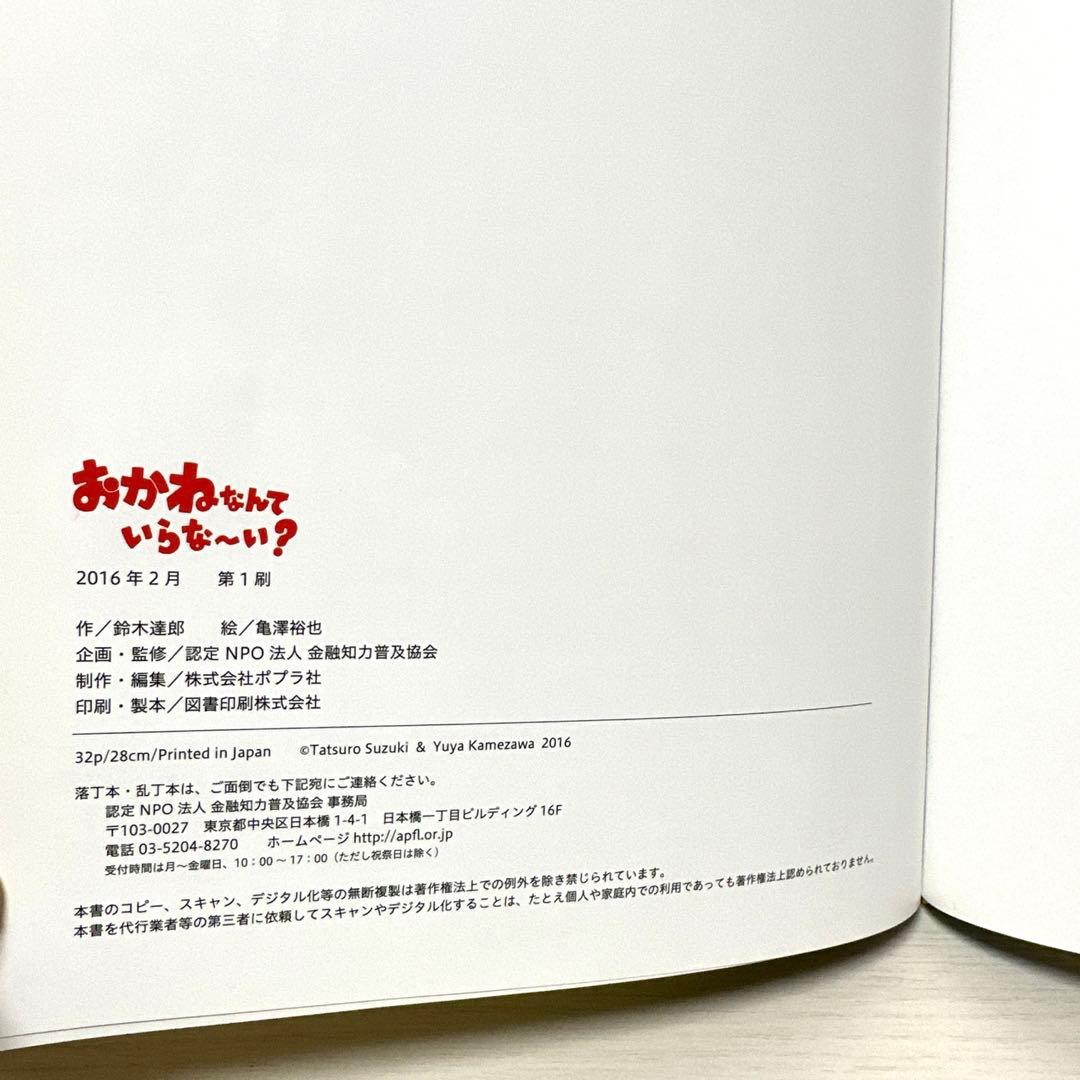 おかねなんて
いらな〜い?
2016年2月 第1刷
作／鈴木達郎 絵／亀澤裕也
企画・監修／認定NPO法人 金融知力普及協会
制作・編集／株式会社ポプラ社
印刷・製本／図書印刷株式会社
32p/28cm/Printed in Japan ©Tatsuro Suzuki & Yuya Kamezawa 2016
落丁本・乱丁本は、ご面倒でも下記宛にご連絡ください。
認定NPO法人 金融知力普及協会 事務局
〒103-0027 東京都中央区日本橋1-4-1 日本橋一丁目ビルディング16F
電話 03-5204-8270 ホームページ http://apfl.or.jp
受付時間は月〜金曜日、10：00〜17：00（ただし祝祭日は除く）
本書のコピー、スキャン、デジタル化等の無断複製は著作権法上での例外を除き禁じられています。
本書を代行業者等の第三者に依頼してスキャンやデジタル化することは、たとえ個人や家庭内での利用であっても著作権法上認められておりません。